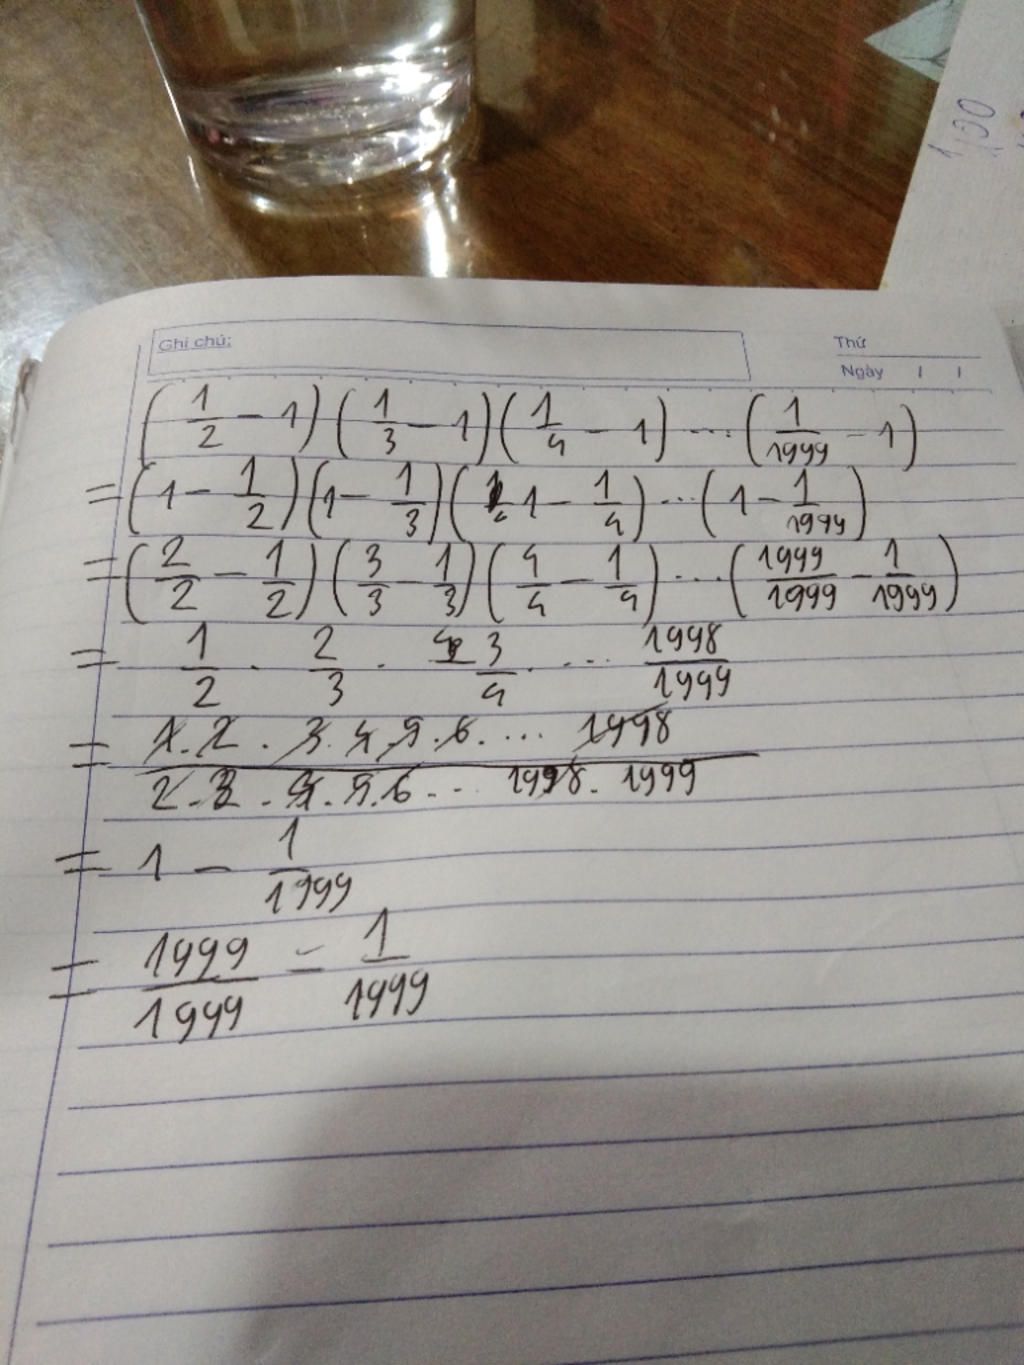 1/100
Ghi chú:
Thứ
Ngày / /
(1/2 - 1)(1/3 - 1)(1/4 - 1) ... (1/1999 - 1)
= (1 - 1/2)(1 - 1/3)(1 - 1/4) ... (1 - 1/1999)
= (2/2 - 1/2)(3/3 - 1/3)(4/4 - 1/4) ... (1999/1999 - 1/1999)
= 1/2 . 2/3 . 3/4 . ... 1998/1999
= 1.2.3.4.5.6. ... 1998 / 2.3.4.5.6 ... 1998.1999
= 1 - 1/1999
= 1999/1999 - 1/1999